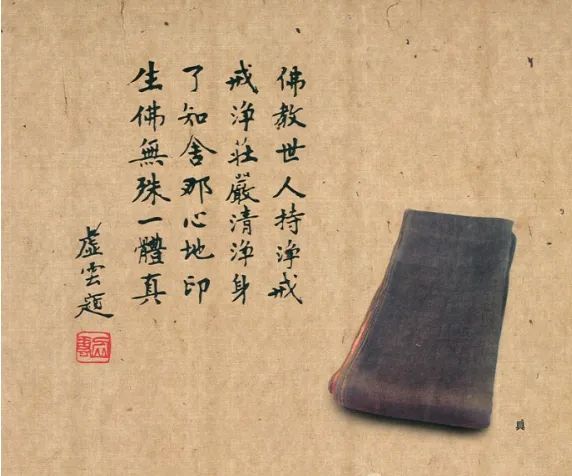 佛教世人持浄戒
戒浄莊嚴清浄身
了知舍那心地印
生佛無殊一體真
虛雲題